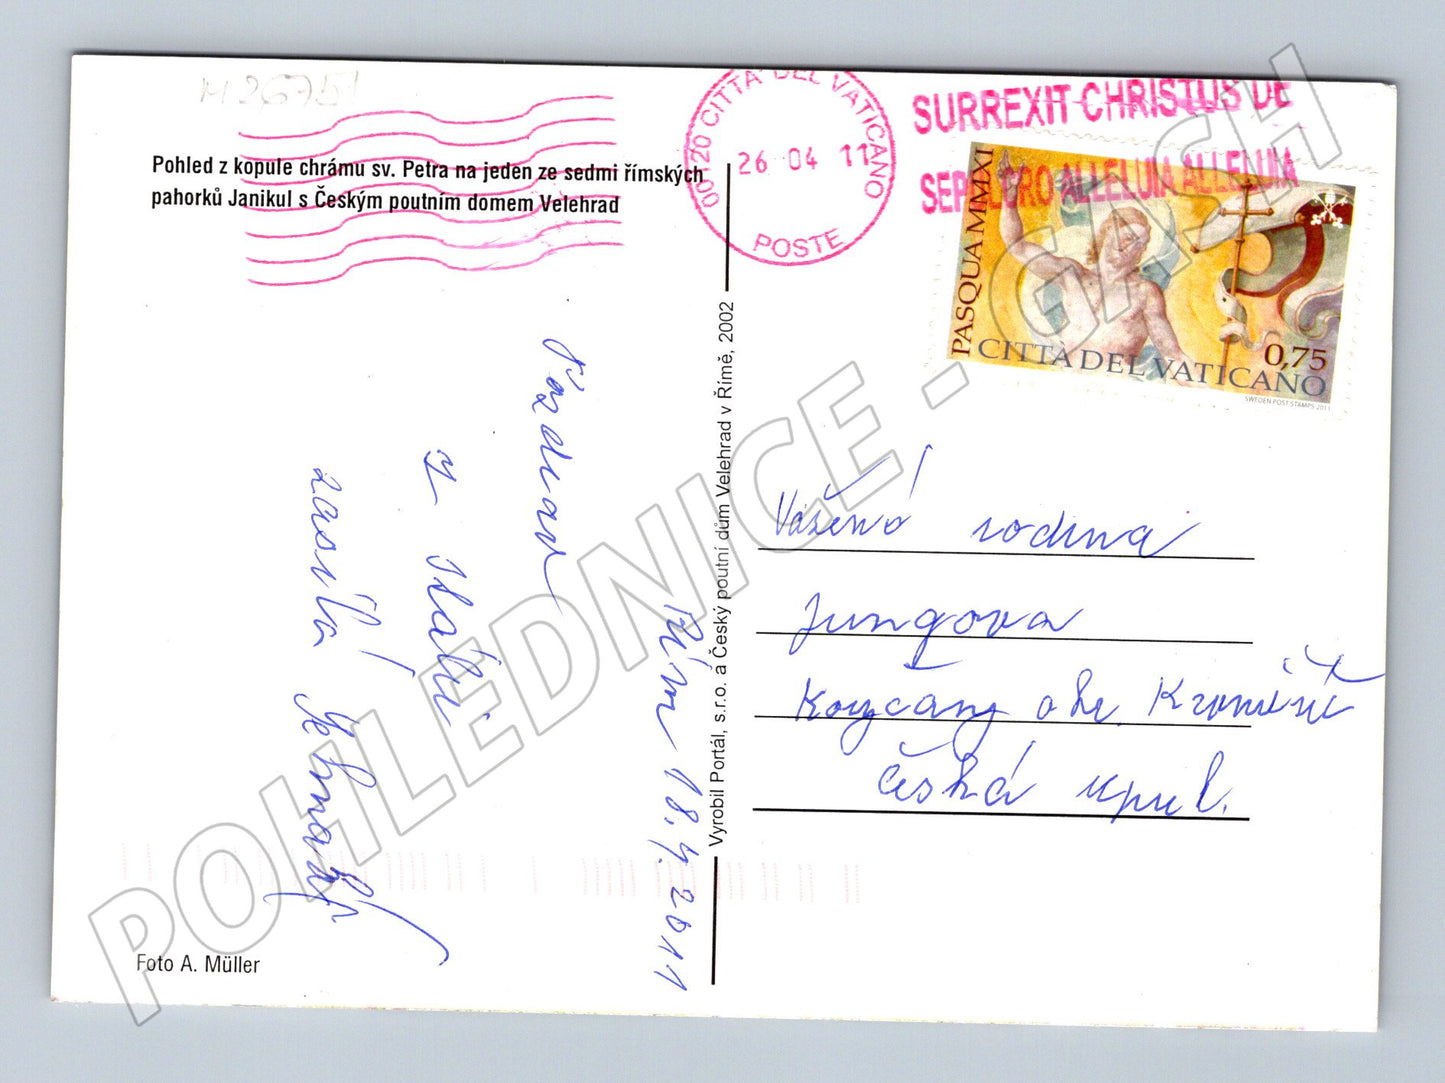 M 26751
Pohled z kopule chrámu sv. Petra na jeden ze sedmi římských
pahorků Janikul s Českým poutním domem Velehrad
00120 CITTÀ DEL VATICANO
26 04 11
POSTE
SURREXIT CHRISTUS DE
SEPULCRO ALLELUIA ALLELUIA
PASQUA MMXI
CITTÀ DEL VATICANO
0,75
SWEDEN POST STAMPS 2011
Pozdrav
z Itálie
zasílá
Řím 18.4.2011
Vyrobil Portál, s.r.o. a Český poutní dům Velehrad v Římě, 2002
Vážená rodina
Jungova
Koryčany okr. Kroměříž
Česká republ.
Foto A. Müller
POHLEDNICE - GASH